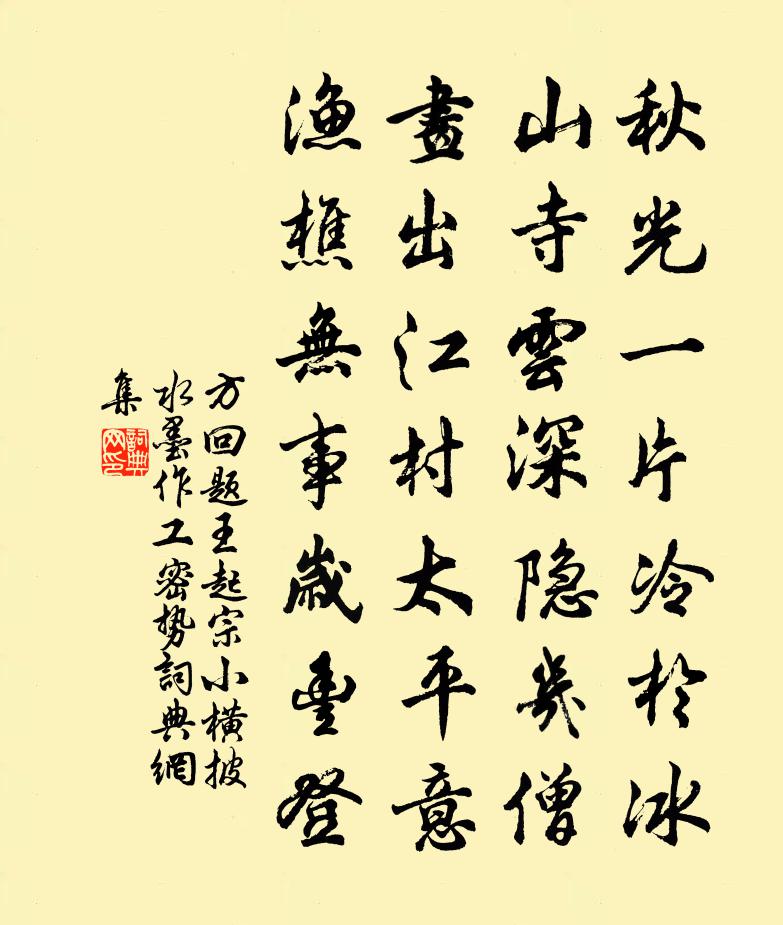 秋光一片冷於冰
山寺雲深隐幾僧
畫出江村太平意
漁樵無事歲豐登
方回题王起宗小橫披
水墨作工密势詞典網
集
詞典
网印